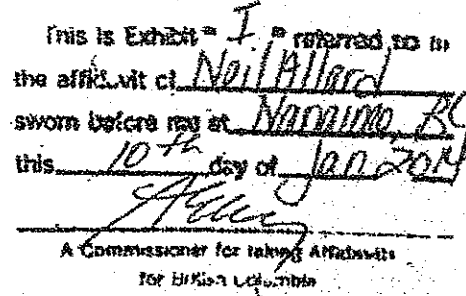 This is Exhibit " I " referred to in
the affidavit of Neil Allard
sworn before me at Nanaimo, BC
this 10th day of Jan 2014
A Commissioner for taking Affidavits
for British Columbia